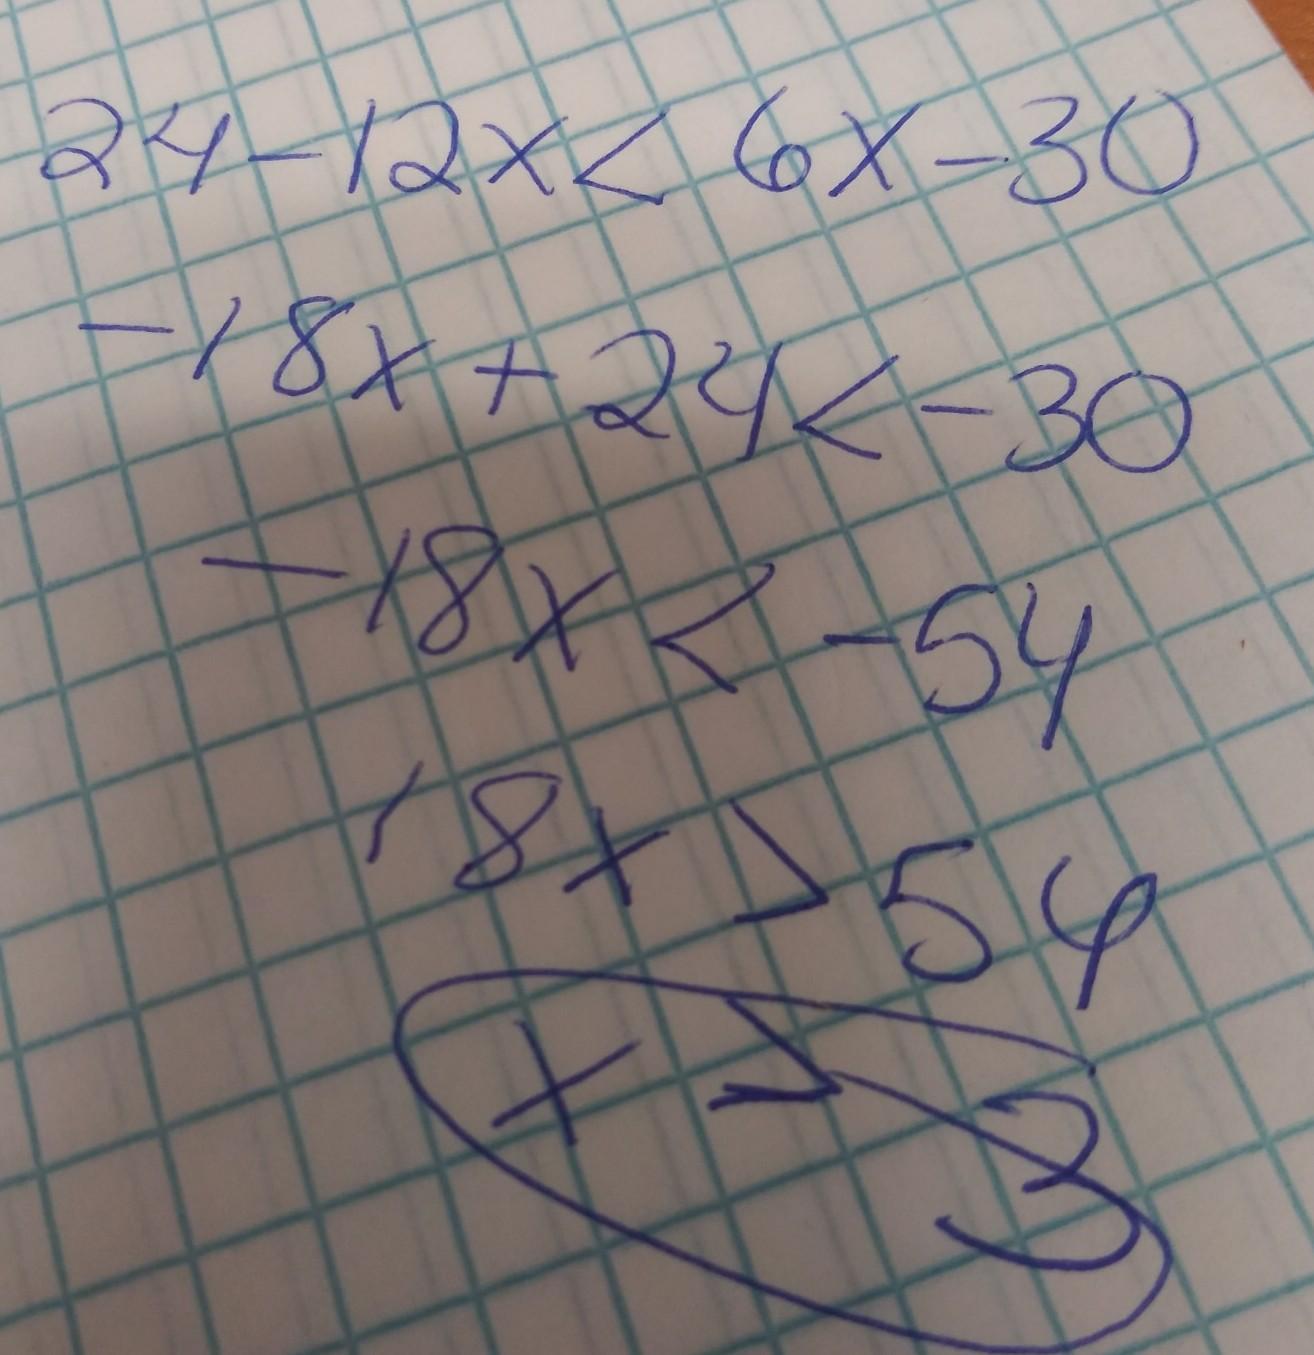 24-12x< 6x-30
-18x+24<-30
-18x<-54
18x>54
x>3